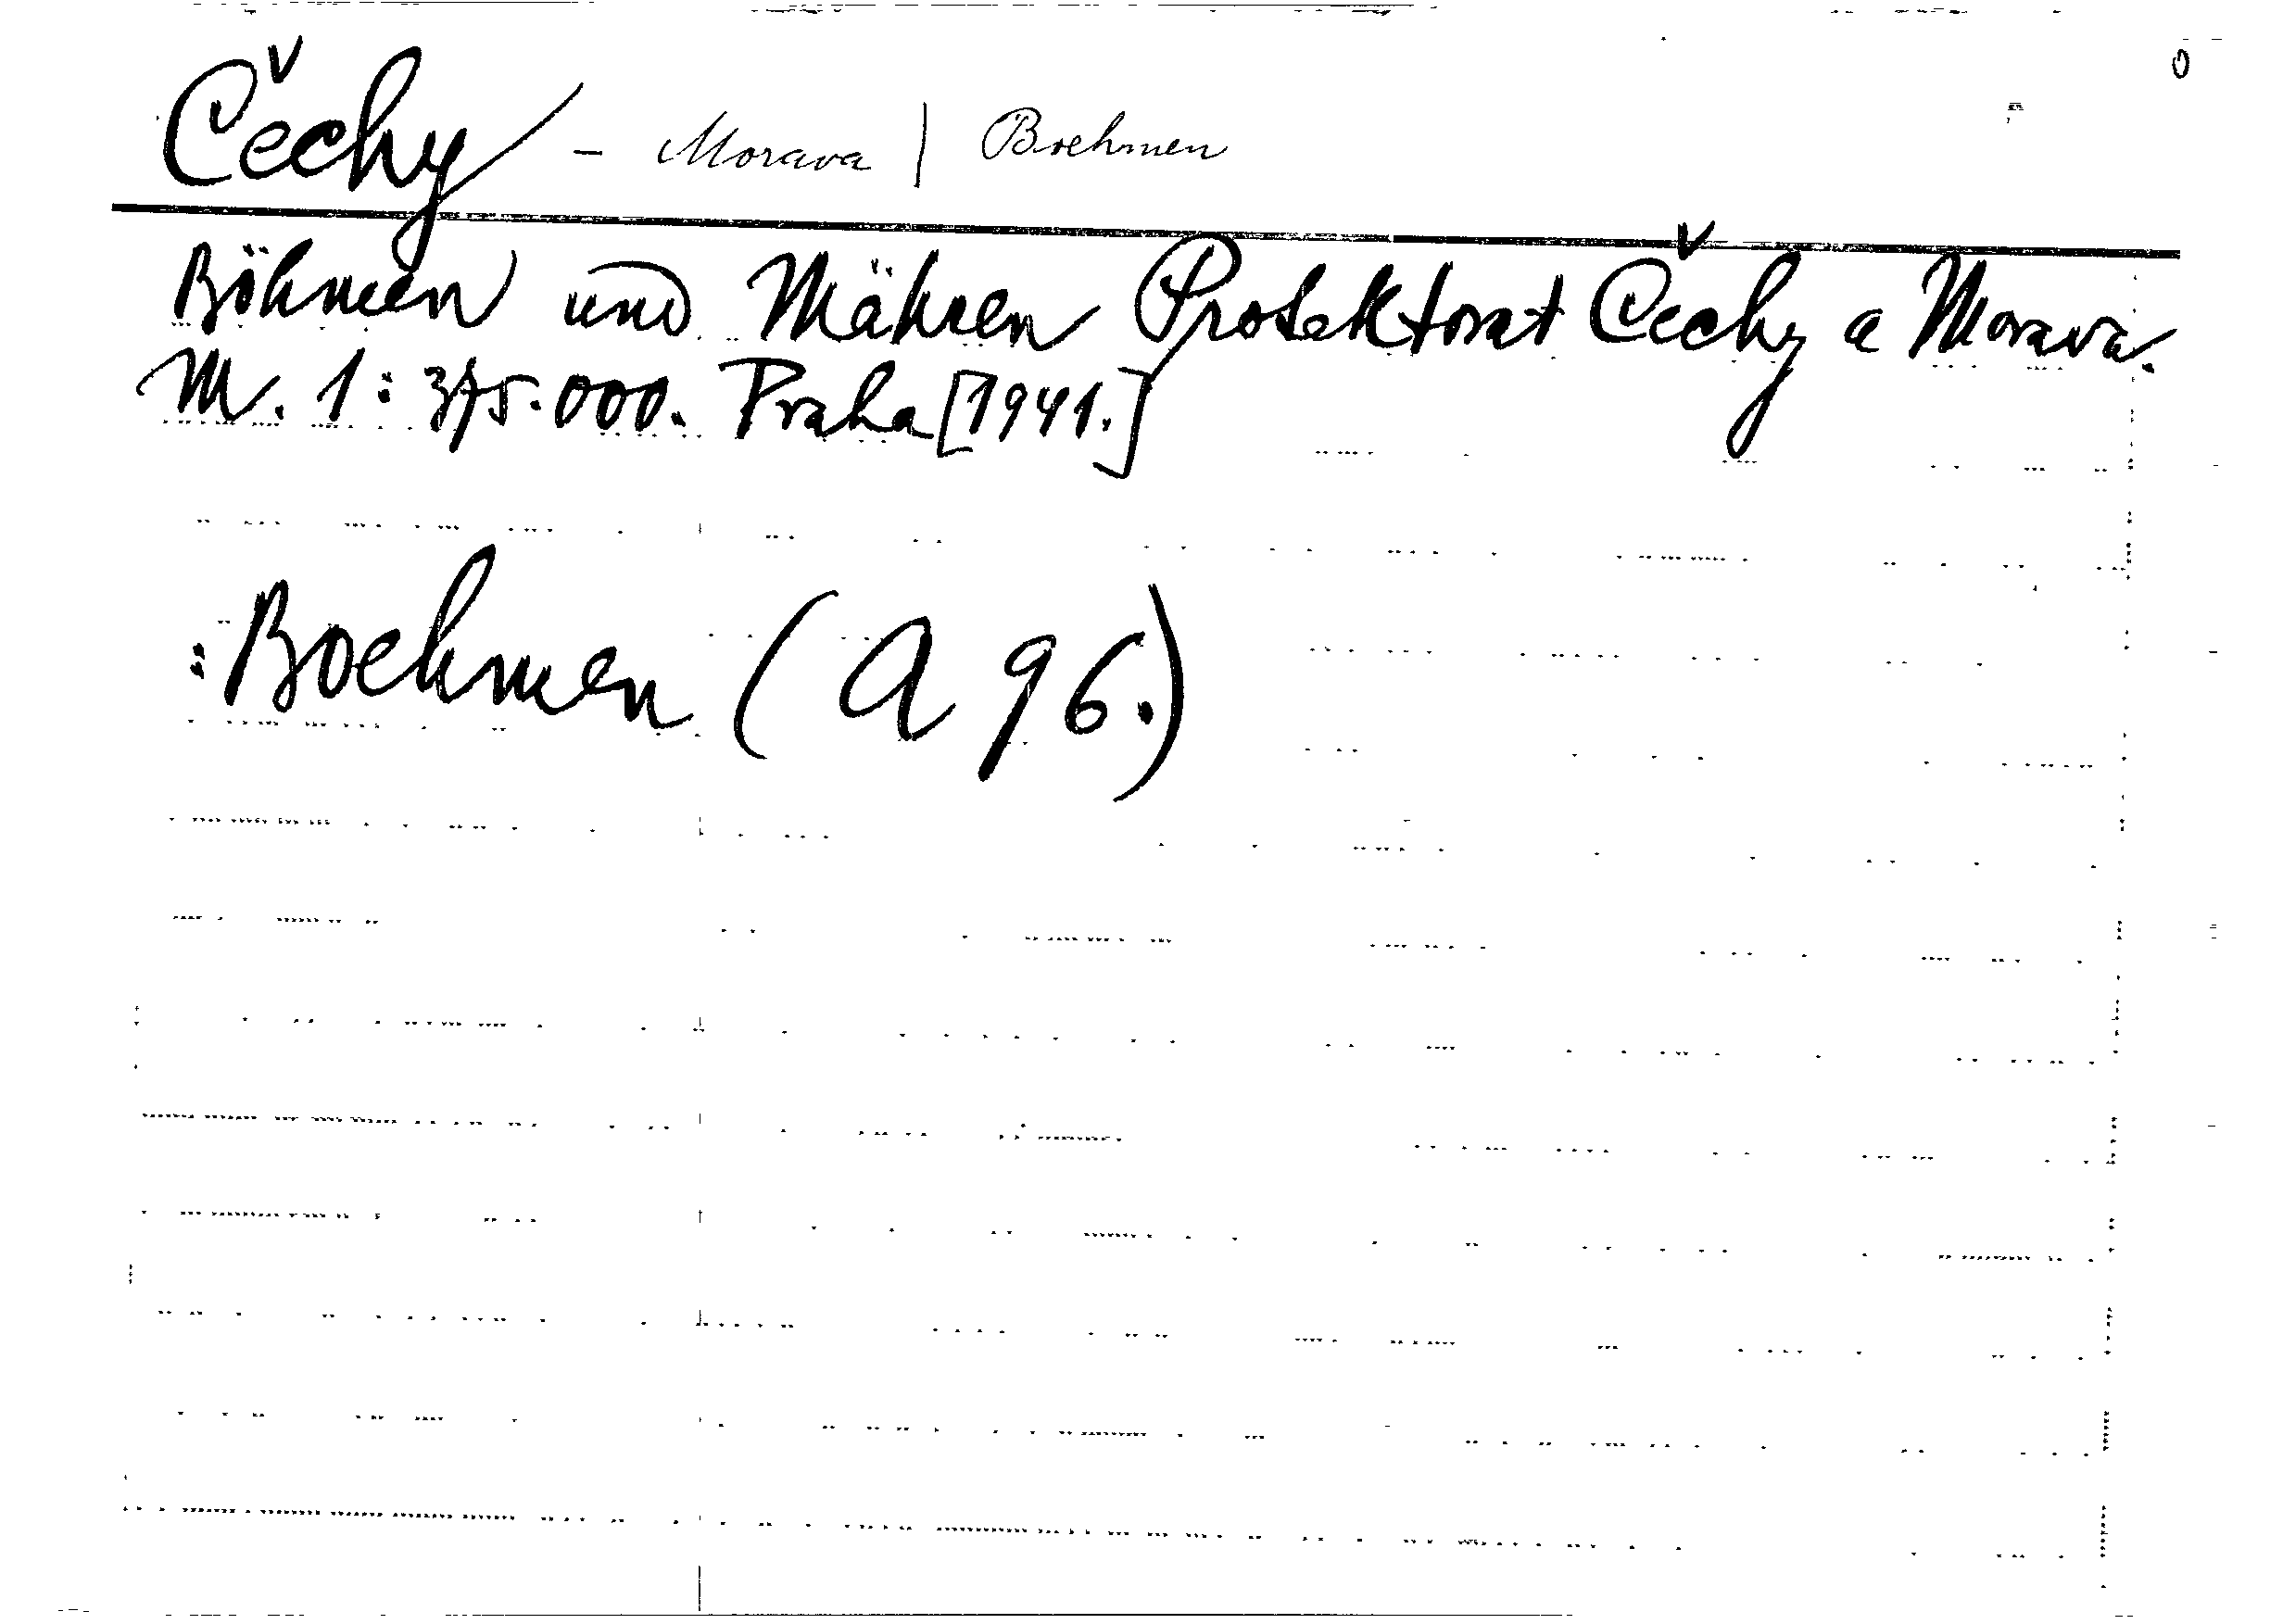 Čechy - Morava | Boehmen
Böhmen und Mähren Protektorat Čechy a Morava.
M. 1:375.000. Praha [1941.]
:Boehmen (A 96.)